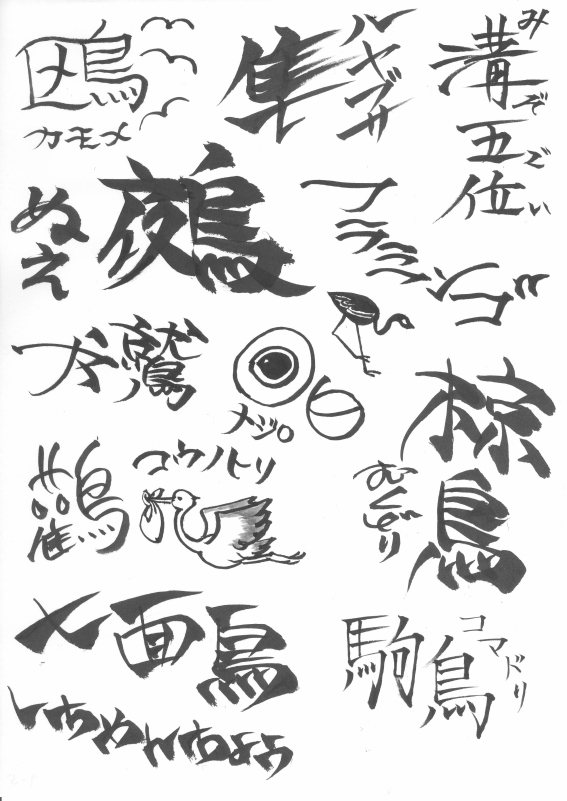 鴎
カモメ
隼
ハヤブサ
溝五位
みぞごい
鵺
ぬえ
フラミンゴ
犬鷲
メジロ
椋鳥
むくどり
鸛
コウノトリ
七面鳥
しちめんちょう
駒鳥
コマドリ